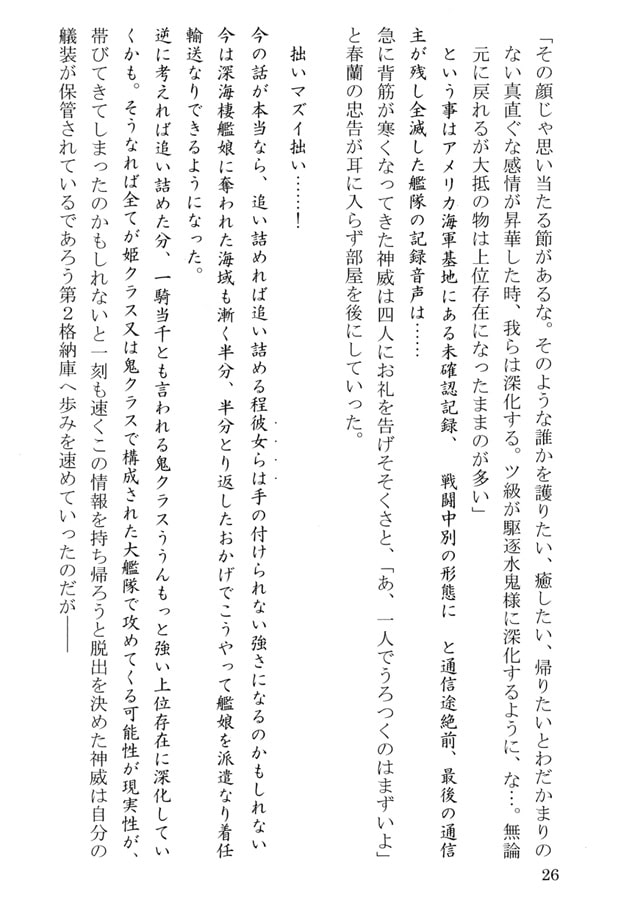 「その顔じゃ思い当たる節があるな。そのような誰かを護りたい、癒したい、帰りたいとわだかまりの
ない真直ぐな感情が昇華した時、我らは深化する。ツ級が駆逐水鬼様に深化するように、な…。無論
元に戻れるが大抵の物は上位存在になったままのが多い」
という事はアメリカ海軍基地にある未確認記録、　戦闘中別の形態に　と通信途絶前、最後の通信
主が残し全滅した艦隊の記録音声は……
急に背筋が寒くなってきた神威は四人にお礼を告げそそくさと、「あ、一人でうろつくのはまずいよ」
と春蘭の忠告が耳に入らず部屋を後にしていった。
拙いマズイ拙い……！
今の話が本当なら、追い詰めれば追い詰める程彼女らは手の付けられない強さになるのかもしれない
今は深海棲艦娘に奪われた海域も漸く半分、半分とり返したおかげでこうやって艦娘を派遣なり着任
輸送なりできるようになった。
逆に考えれば追い詰めた分、一騎当千とも言われる鬼クラスううんもっと強い上位存在に深化してい
くかも。そうなれば全てが姫クラス又は鬼クラスで構成された大艦隊で攻めてくる可能性が現実性が、
帯びてきてしまったのかもしれないと一刻も速くこの情報を持ち帰ろうと脱出を決めた神威は自分の
艤装が保管されているであろう第２格納庫へ歩みを速めていったのだが――
26